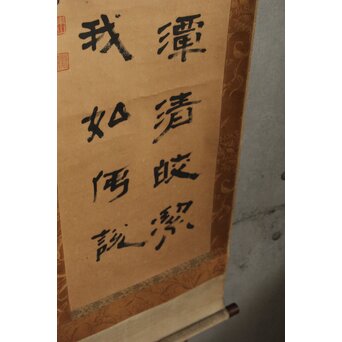 潭清皎潔
我如何説